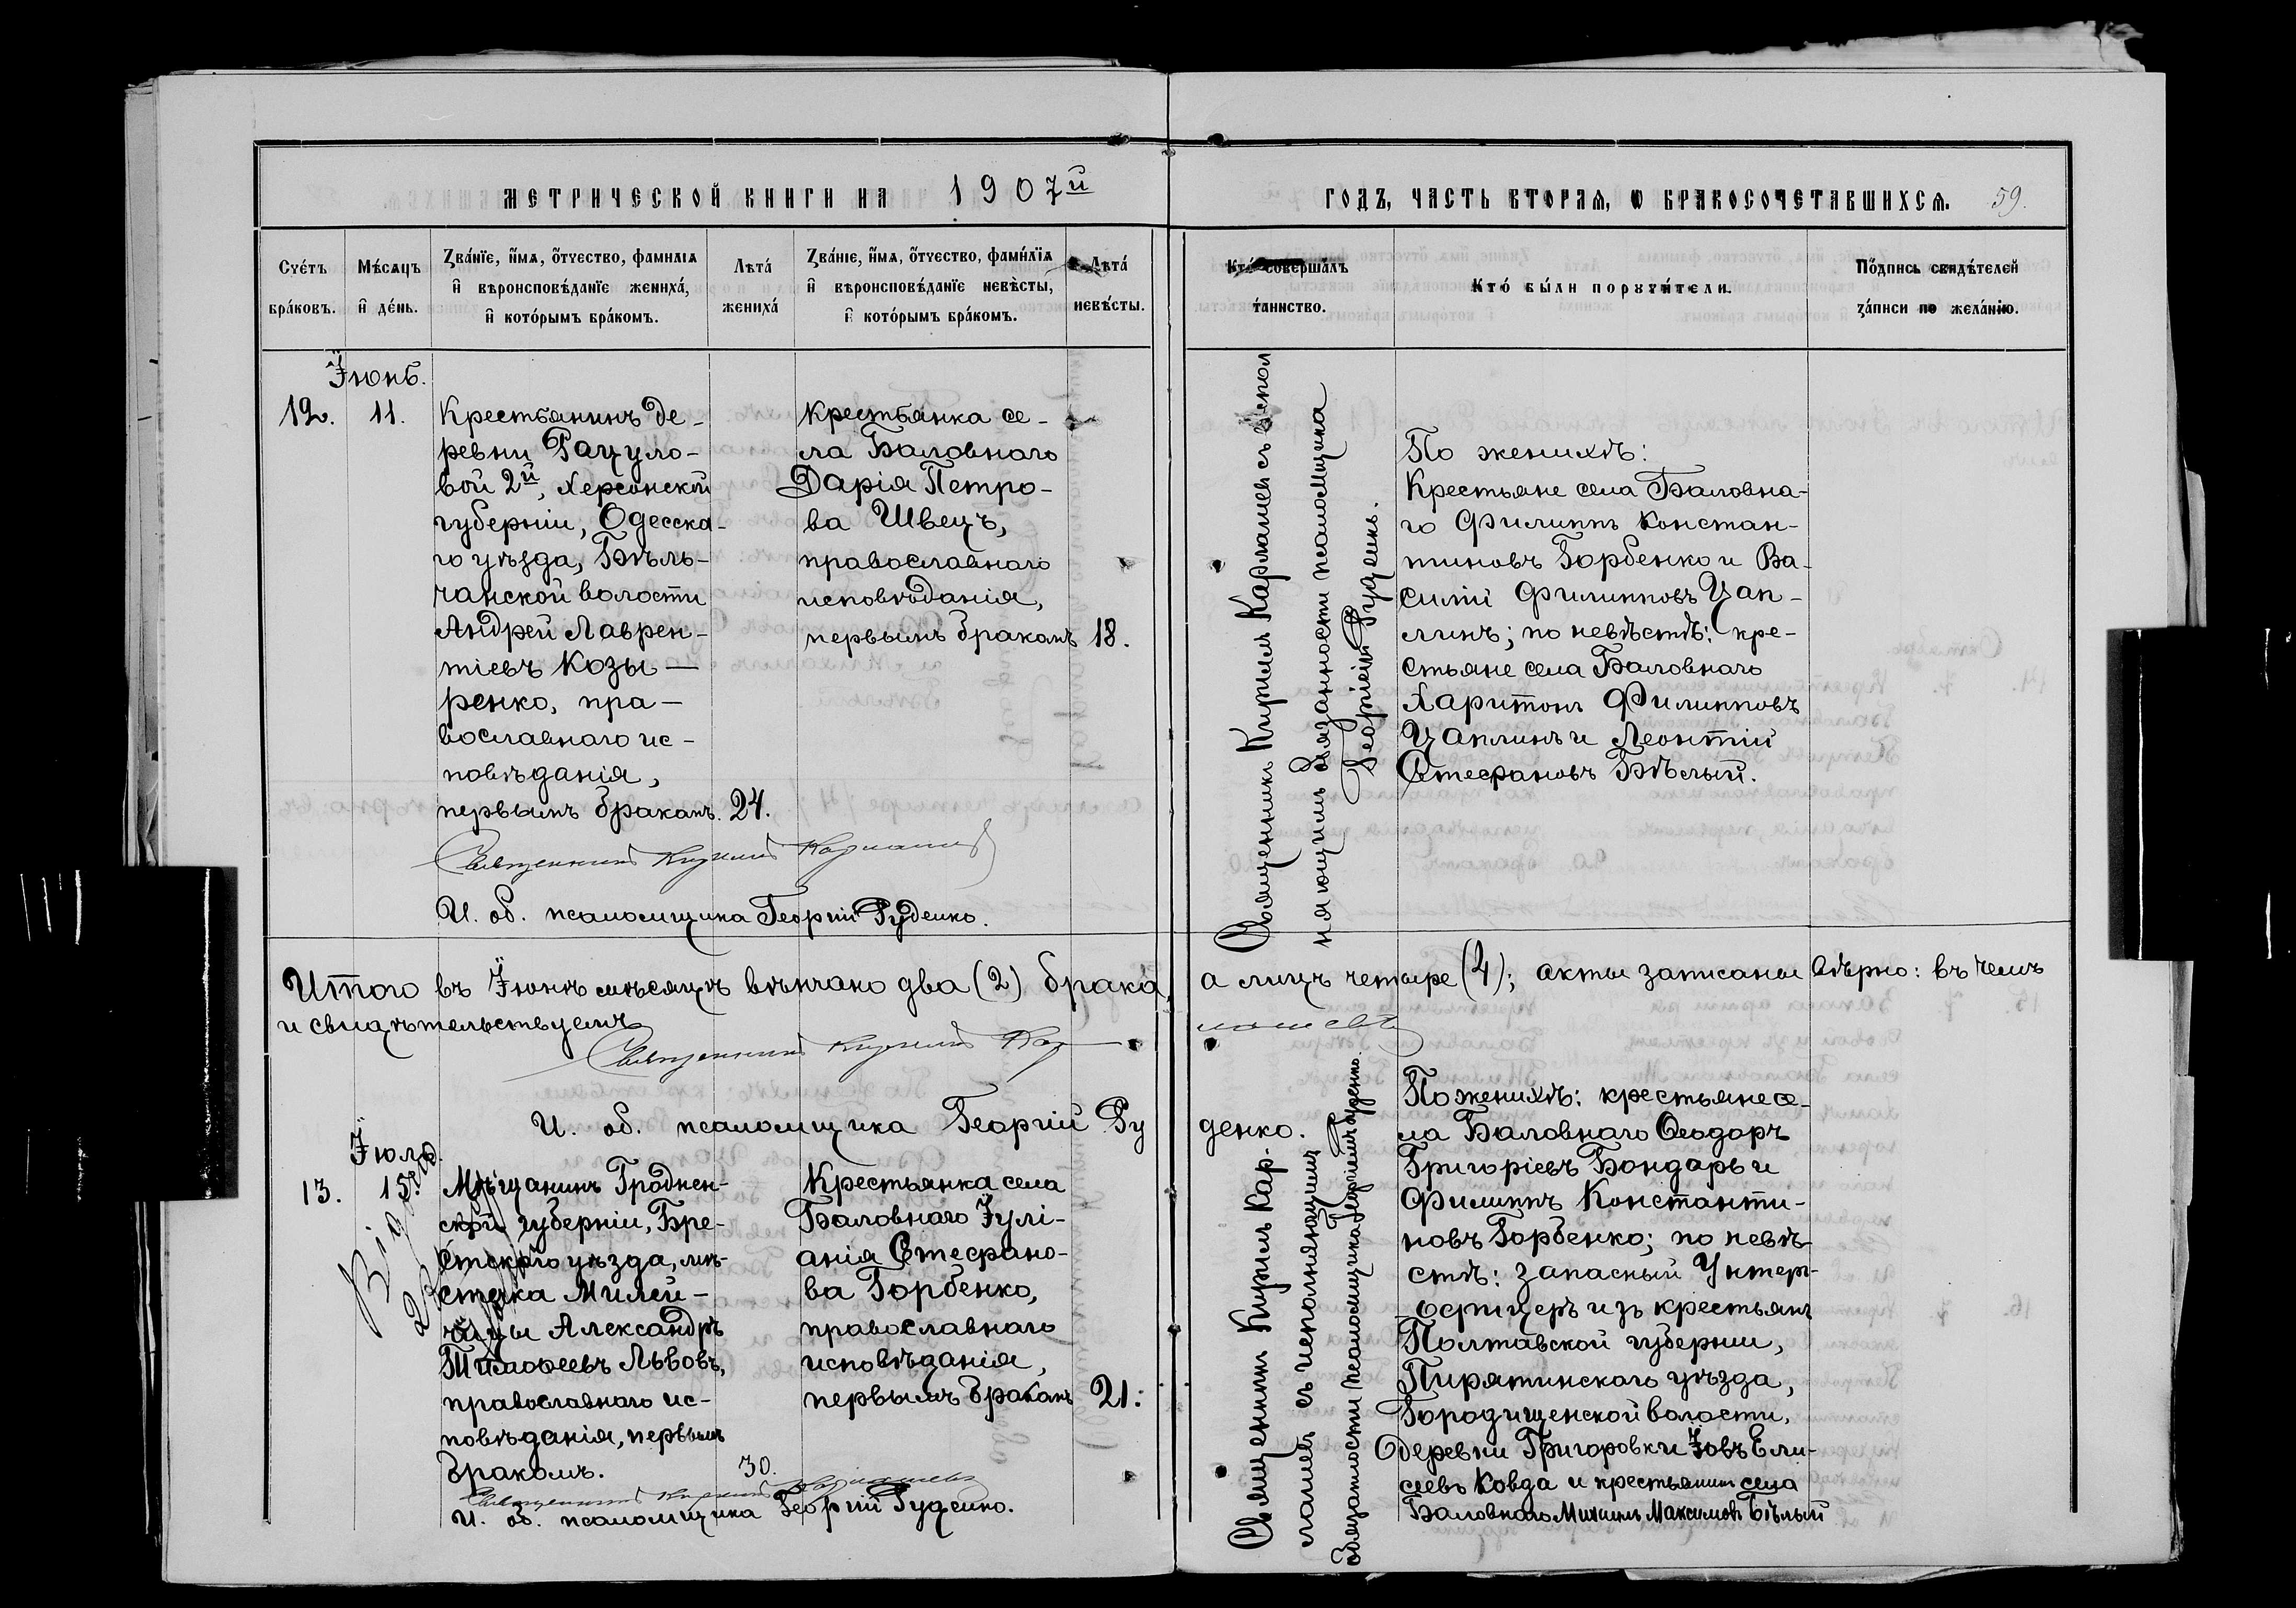 МЕТРИЧЕСКОЙ КНИГИ НА 1907й
ГОДЪ, ЧАСТЬ ВТОРАЯ, Ѡ БРАКОСОЧЕТАВШИХСЯ. 59.
Счетъ браковъ.
Мѣсяцъ и день.
Званїе, имя, отчество, фамилія
и вѣроисповѣданїе жениха,
и которымъ бракомъ.
Лѣта
жениха
Званіе, имя, отчество, фамилїя
и вѣроисповѣданїе невѣсты,
и которымъ бракомъ.
Лѣта
невѣсты.
Кто совершалъ
таинство.
Кто были поручители.
Подпись свидѣтелей
записи по желанію.
Їюнь.
12. 11.
Крестьянинъ де-
ревни Гацуло-
вой 2й, Херсонской
губерніи, Одесска-
го уѣзда, Бѣль-
чанской волости
Андрей Лаврен-
тіевъ Козы-
ренко, пра-
вославнаго ис-
повѣданія,
первымъ бракомъ. 24.
Крестьянка се-
ла Баловнаго
Дарія Петро-
ва Швецъ,
православнаго
исповѣданія,
первымъ бракомъ 18.
Священникъ Кириллъ Карпашевъ съ испол
няющимъ обязанности псаломщика
Георгіемъ Руденк.
По женихѣ:
Крестьяне села Баловна-
го Филиппъ Констан-
тиновъ Горбенко и Ва-
силій Филипповъ Цап-
линъ; по невѣстѣ: кре-
стьяне села Баловнаго
Харитонъ Филипповъ
Цаплинъ и Леонтій
Стефановъ Бѣлый.
Священникъ Кириллъ
И. об. псаломщика Георгій Руденко.
Итого въ Їюнѣ мѣсяцѣ вѣнчано два (2) брака, а лицъ четыре (4); акты записаны вѣрно: въ чемъ
и свидѣтельствуемъ
Священникъ Кириллъ
И. об. псаломщика Георгій Руденко.
Їюль.
13. 15.
Мѣщанинъ Гроднен-
ской губерніи, Бре-
стскаго уѣзда, мѣ-
стечка Милей-
чицы Александръ
Тимоѳеевъ Львовъ,
православнаго ис-
повѣданія, первымъ
бракомъ. 30.
Крестьянка села
Баловнаго Їулі-
анія Стефано-
ва Горбенко,
православнаго
исповѣданія,
первымъ бракомъ 21.
Священникъ Кириллъ Кар-
пашевъ съ исполняющимъ
обязанности псаломщика Георгіемъ Руденко.
По женихѣ: крестьяне се-
ла Баловнаго Ѳеодоръ
Григоріевъ Бондарь и
Филиппъ Константи-
новъ Горбенко; по невѣ-
стѣ: запасный Унтеръ-
офицеръ изъ крестьянъ
Полтавской губерніи,
Пирятинскаго уѣзда,
Городищенской волости,
деревни Григоровки Їовъ Ели-
сеевъ Ковда и крестьянинъ села
Баловнаго Михаилъ Максимовъ Бѣлый
Священникъ Кириллъ
И. об. псаломщика Георгій Руденко.